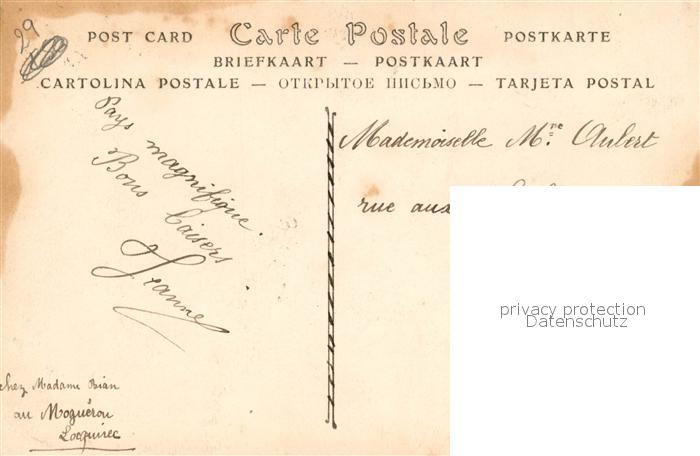 29
POST CARD Carte Postale POSTKARTE
BRIEFKAART — POSTKAART
CARTOLINA POSTALE — ОТКРЫТОЕ ПИСЬМО — TARJETA POSTAL
Pays magnifique.
Bons baisers
Jeanne
chez Madame Bian
au Moguérou
Locquirec
Mademoiselle M.ne Aubert
rue aux
privacy protection
Datenschutz